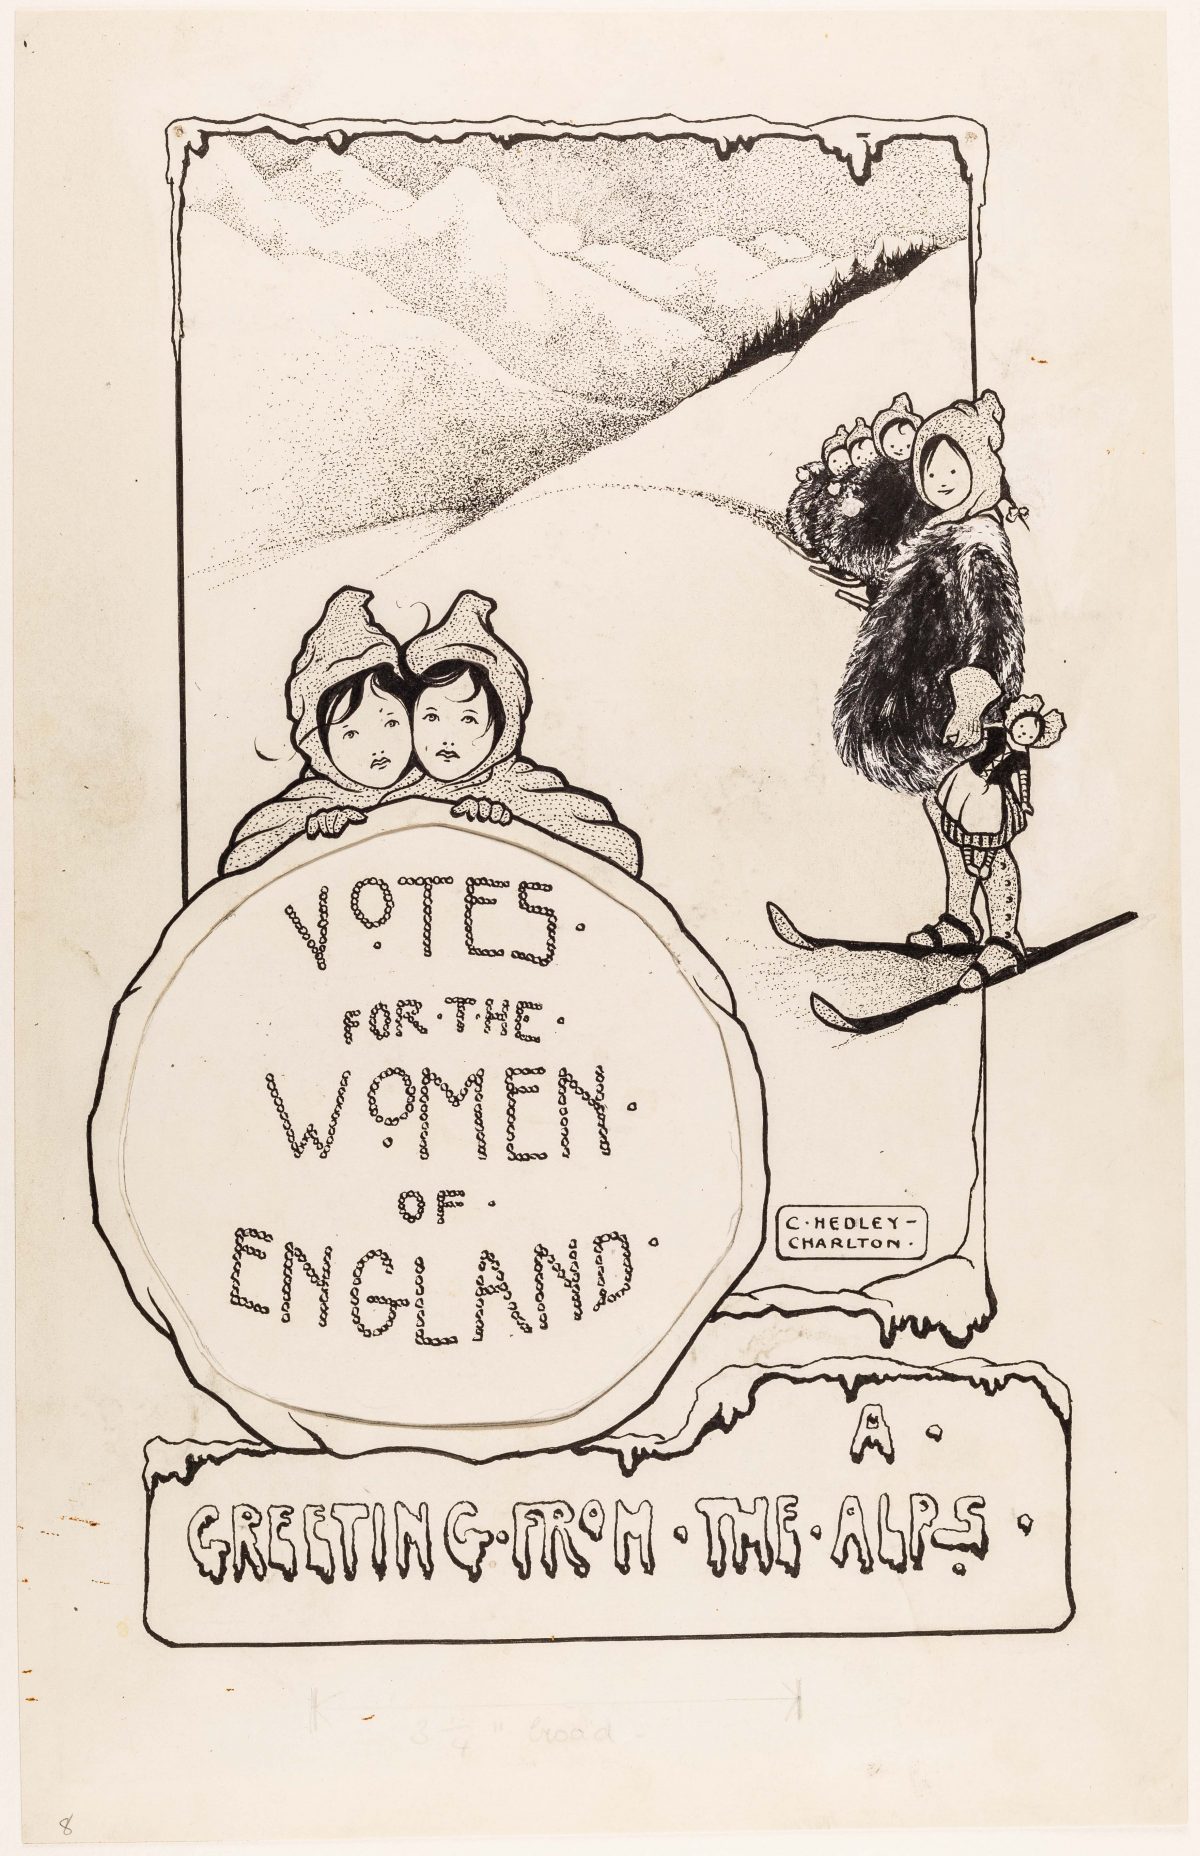 VOTES.
FOR·THE·
WOMEN·
OF·
ENGLAND·
C·HEDLEY-
CHARLTON·
A·
GREETING·FROM·THE·ALPS·
8